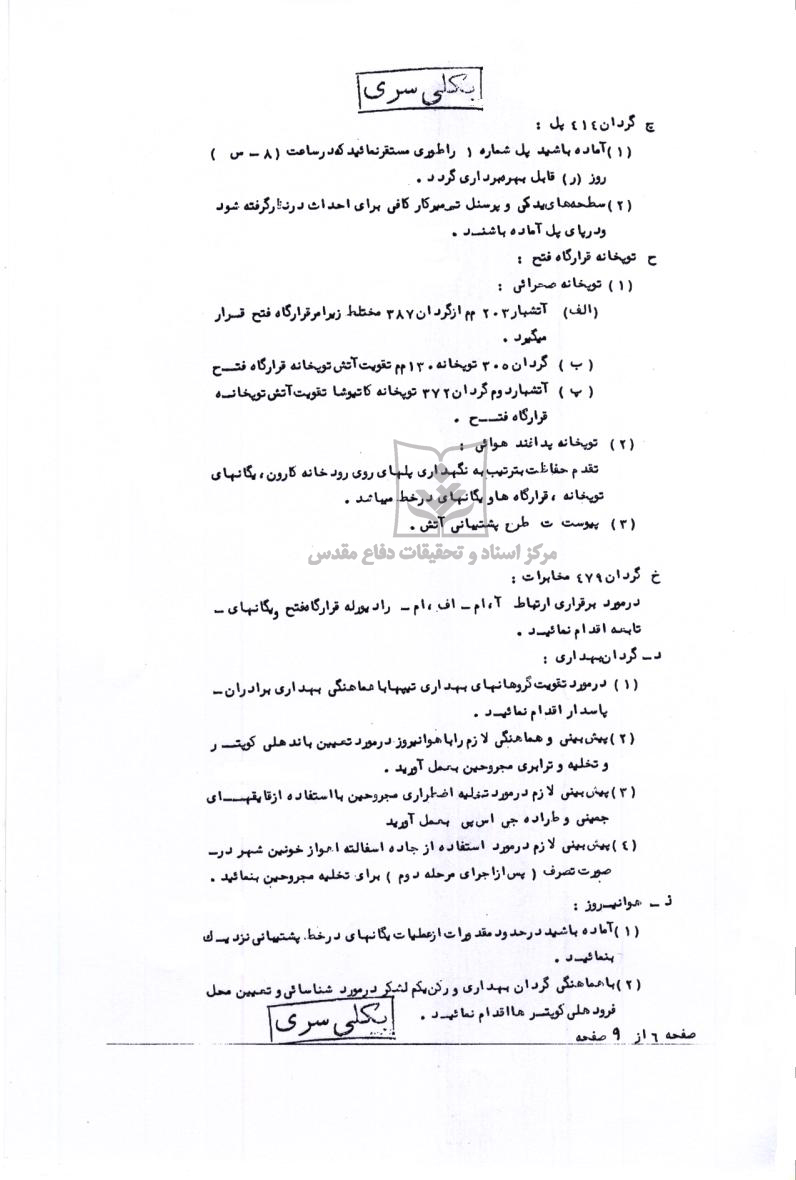 بکلی سری
چ گردان ٤١٤ پل :
(١) آماده باشید پل شماره ١ را طوری مستقر نمائید که در ساعت (٨ ــ س )
روز (ر) قابل بهره برداری گردد .
(٢) سطحه های یدکی و پرسنل تعمیرکار کافی برای احداث در نظر گرفته شود
و در پای پل آماده باشنــد .
ح توپخانه قرارگاه فتح :
(١) توپخانه صحرائی :
(الف) آتشبار ٢٠٣ مم از گردان ٣٨٧ مختلط زیر امر قرارگاه فتح قــرار
میگیرد .
(ب) گردان ٣٠٥ توپخانه ١٣٠ مم تقویت آتش توپخانه قرارگاه فتــح
(پ) آتشبار دوم گردان ٣٧٢ توپخانه کاتیوشا تقویت آتش توپخانــه
قرارگاه فتــح .
(٢) توپخانه پدافند هوائی :
تقدم حفاظت بترتیب به نگهداری پلهای روی رودخانه کارون ، یگانهای
توپخانه ، قرارگاه ها و یگانهای در خط میباشد .
(٣) پیوست ت طرح پشتیبانی آتش .
مرکز اسناد و تحقیقات دفاع مقدس
خ گردان ٤٧٩ مخابرات :
در مورد برقراری ارتباط آ ، ام ــ اف ، ام ــ رادیورله قرارگاه فتح و یگانهای ــ
تابعه اقدام نمائیــد .
د ــ گردان بهداری :
(١) در مورد تقویت گروهانهای بهداری تیپها با هماهنگی بهداری برادران ــ
پاسدار اقدام نمائیــد .
(٢) پیش بینی و هماهنگی لازم را با هوانیروز در مورد تعیین باند هلی کوپتــر
و تخلیه و ترابری مجروحین بعمل آورید .
(٣) پیش بینی لازم در مورد تخلیه اضطراری مجروحین با استفاده از قایقهــای
جمینی و طراده جی اس پی بعمل آورید
(٤) پیش بینی لازم در مورد استفاده از جاده اسفالته اهواز خونین شهر در ــ
صورت تصرف ( پس از اجرای مرحله دوم ) برای تخلیه مجروحین بنمائید .
ذ ــ هوانیــروز :
(١) آماده باشید در حدود مقدورات از عملیات یگانهای در خط پشتیبانی نزدیــك
بنمائیــد .
(٢) با هماهنگی گردان بهداری و رکن یکم لشکر در مورد شناسائی و تعیین محل
فرود هلی کوپتــر ها اقدام نمائیــد .
بکلی سری
صفحه ٦ از ٩ صفحه